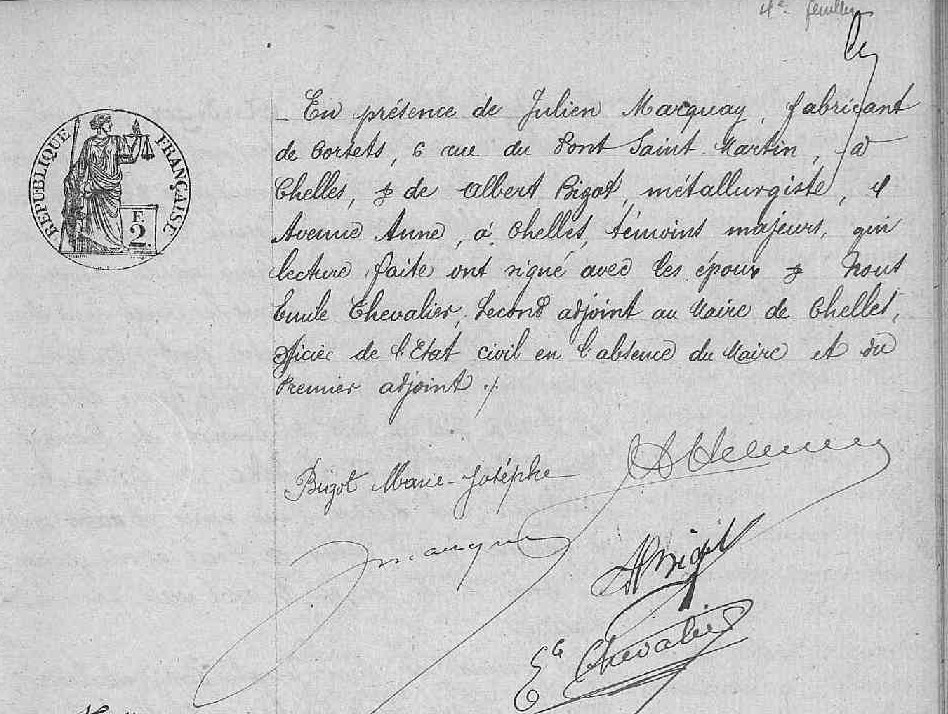 4e feuillet
RÉPUBLIQUE FRANÇAISE
F.
2
En présence de Julien Macquay, fabricant
de Corsets, 6 rue du Pont Saint Martin, à
Chelles, & de Albert Bigot, métallurgiste, 4
Avenue Anne, à Chelles, témoins majeurs, qui
lecture faite ont signé avec les époux & Nous
Emile Chevalier, Second adjoint au Maire de Chelles,
officier de l'Etat civil en l'absence du Maire et du
Premier adjoint ./.
Bigot Marie-Josèphe
ABigot
Ele Chevalier